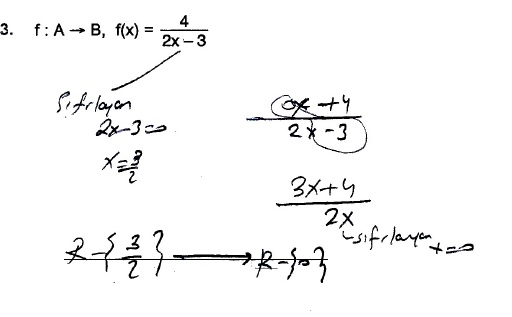 3. f : A → B, f(x) = 4 / (2x – 3)
Sıfırlayan
2x-3=0
x=3/2
(0x+4) / (2x-3)
(3x+4) / 2x
sıfırlayan x=0
R-{3/2} → R-{0}